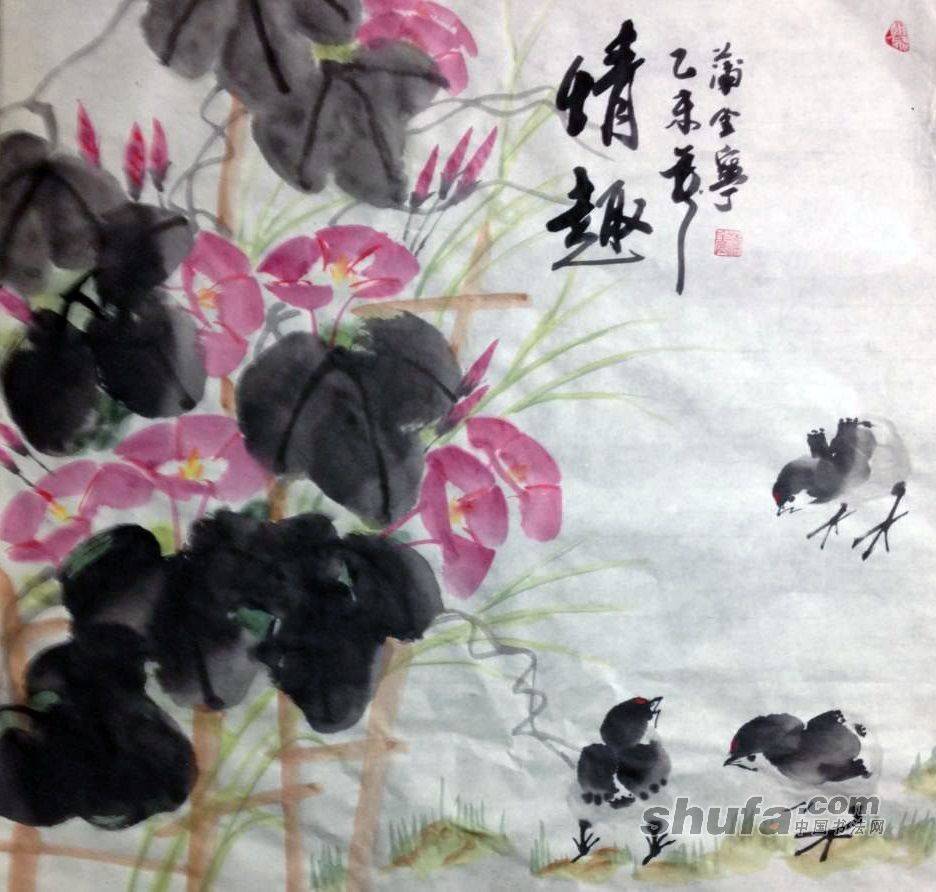 情趣
乙未
蒲金寧
shufa.com
中国书法网